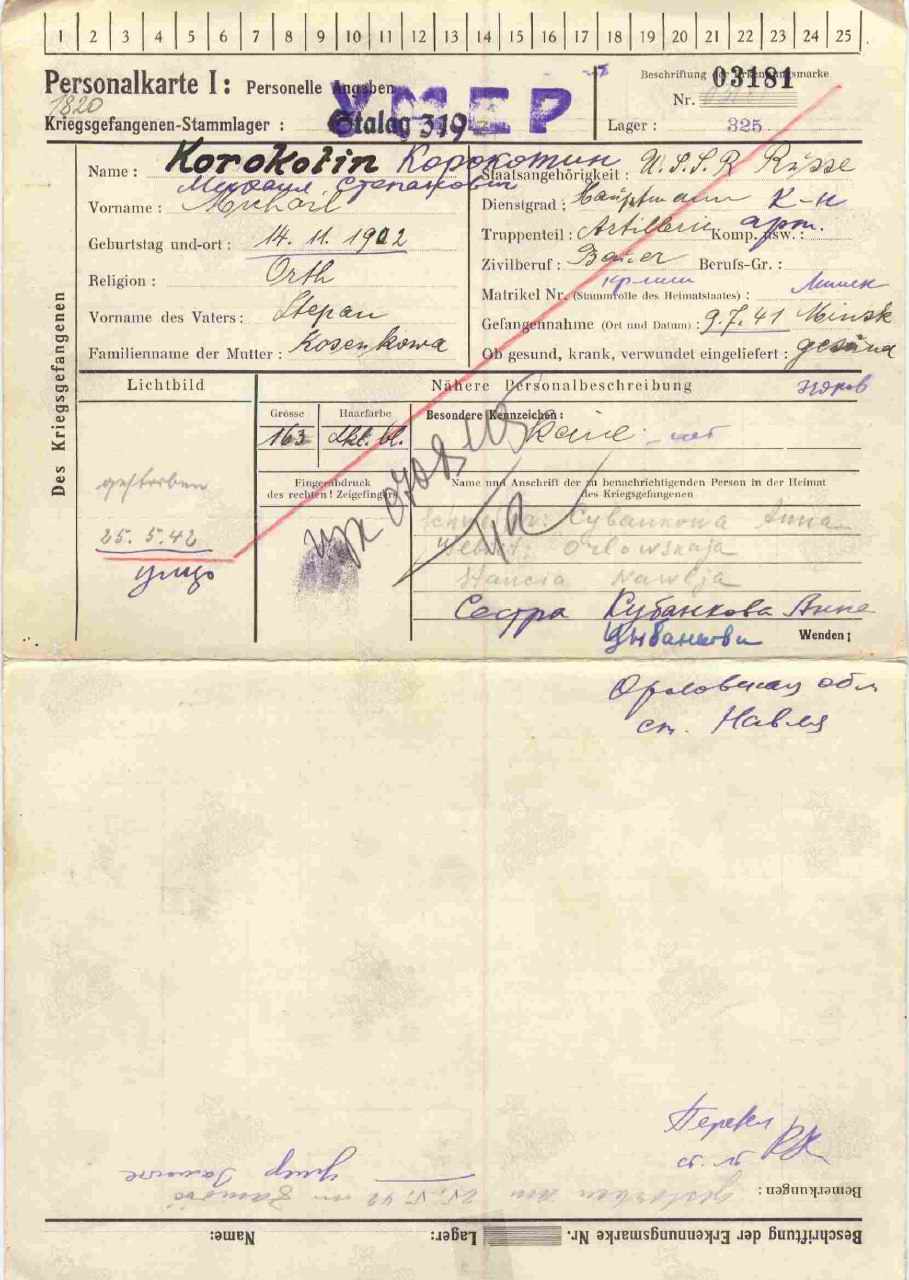 1 2 3 4 5 6 7 8 9 10 11 12 13 14 15 16 17 18 19 20 21 22 23 24 25
Personalkarte I: Personelle Angaben
1820
УМЕР
Kriegsgefangenen-Stammlager: Stalag 319
Beschriftung der Erkennungsmarke
03181
Nr.
Lager: 325
Des Kriegsgefangenen
Name: Korokotin Корокотин
Михаил Степанович
Vorname: Michail
Geburtstag und-ort: 14. 11. 1902
Religion: Orth
Vorname des Vaters: Stepan
Familienname der Mutter: Kosenkowa
Staatsangehörigkeit: U.S.S.R Russe
Dienstgrad: Hauptmann К-н
Truppenteil: Artillerie Komp. usw.: арт.
Zivilberuf: Bauer Berufs-Gr.:
Matrikel Nr. (Stammrolle des Heimatstaates): Минск
Gefangennahme (Ort und Datum): 9.7.41 Minsk
Ob gesund, krank, verwundet eingeliefert: gesund
здоров
Lichtbild
gestorben
25. 5. 42
умер
Nähere Personalbeschreibung
Grösse
163
Haarfarbe
dkl. bl.
Besondere Kennzeichen:
keine - нет
Fingerabdruck
des rechten! Zeigefingers
Name und Anschrift der zu benachrichtigenden Person in der Heimat
des Kriegsgefangenen
Schwester: Cybankowa Anna
Gebiet: Orlowskaja
Stancia Nawlja
Сестра Кубанкова Анна
Цыбанкова
Wenden!
Орловская обл
ст. Навля
Перевел
Bemerkungen: Gestorben am 25. V. 42 in Zamość
умер Замостье
Beschriftung der Erkennungsmarke Nr. Lager: Name: